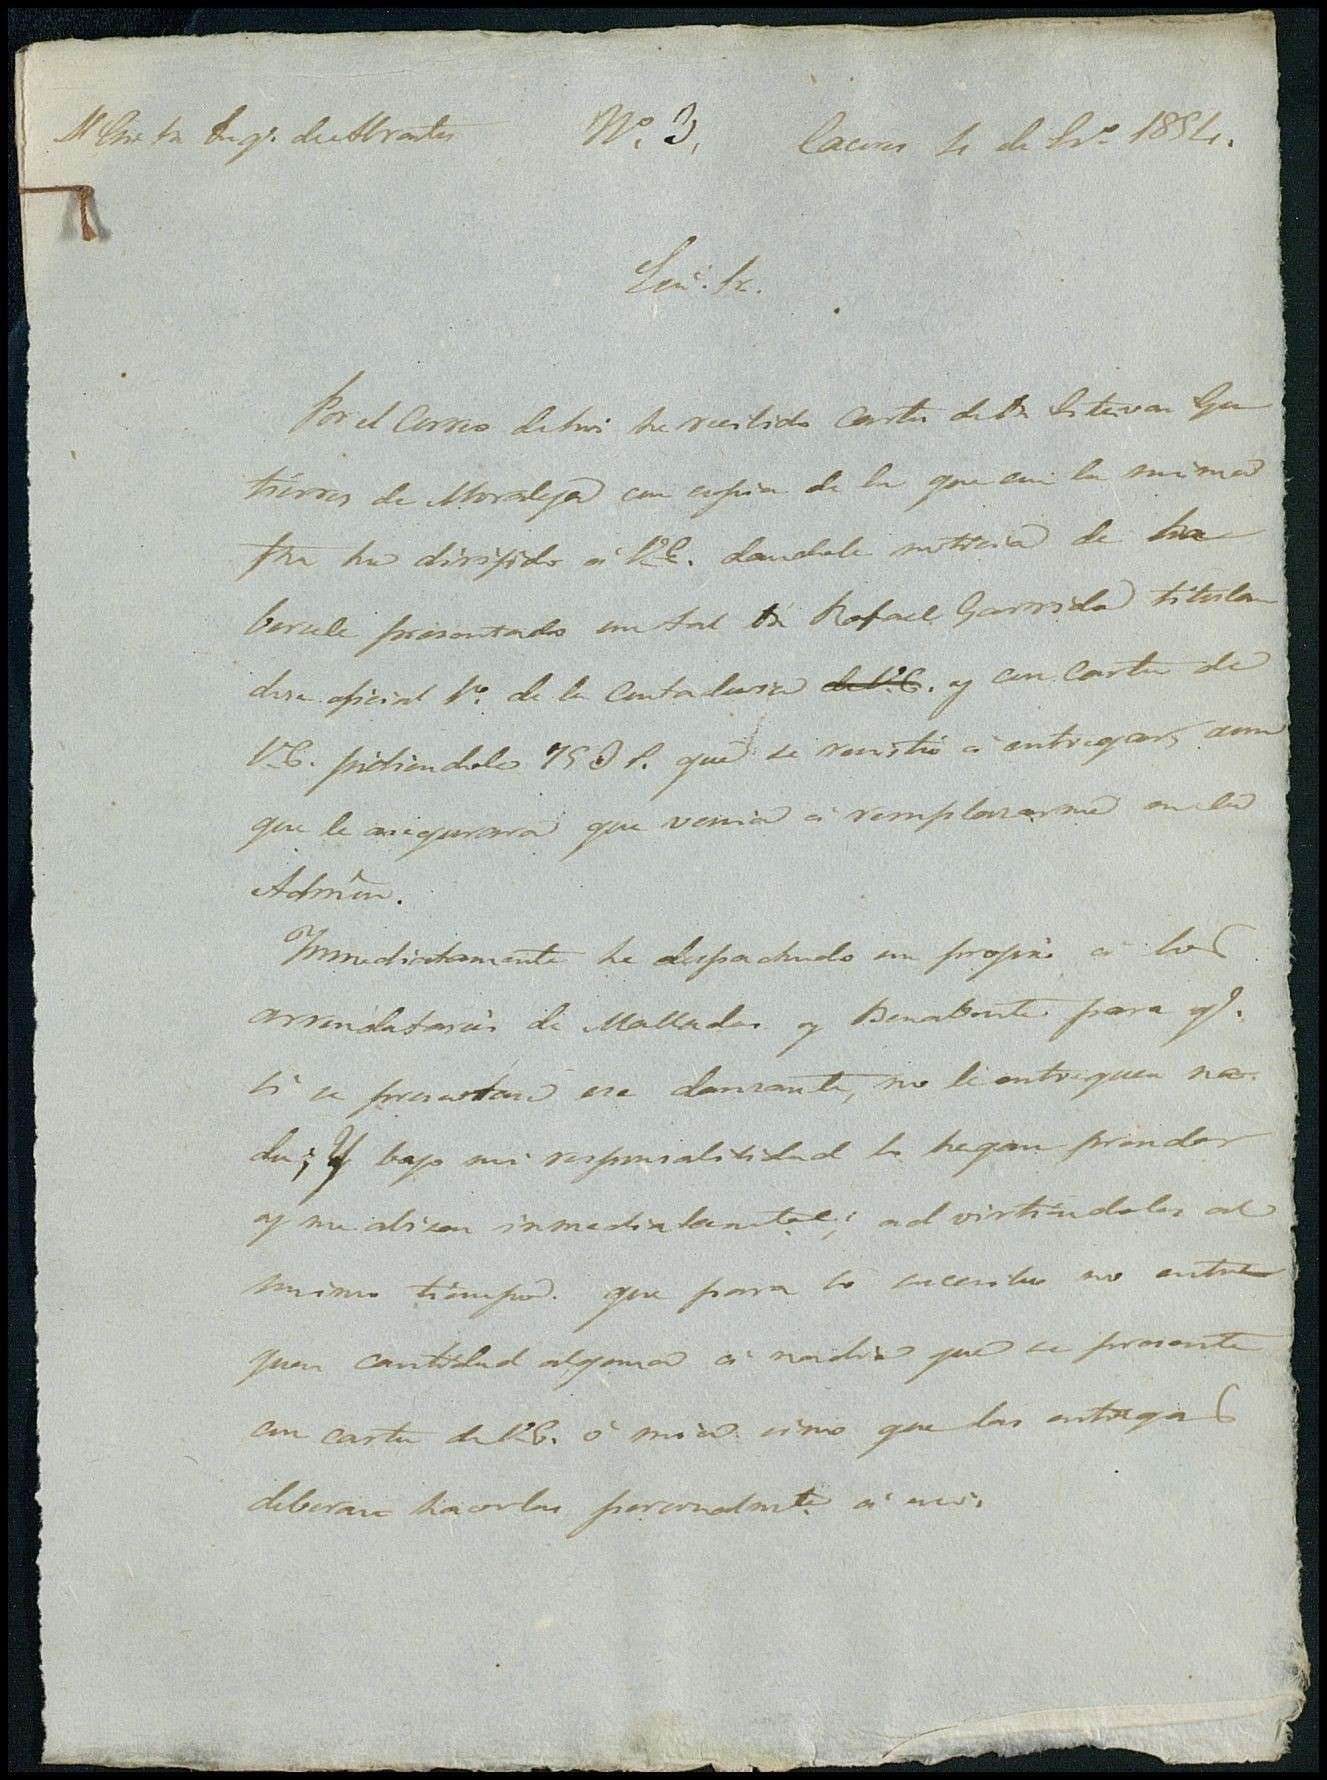 Duq.e de Abrantes Nº. 3, Caceres 4 de 1854.
Por el Correo de hoi he recibido carta de Dn Estevan Gu
tierrez de Moraleja con copia de la que con la misma
fha ha dirijido á V.E. dandole noticia de ha
bersele presentado un tal Dn Rafael Garrido titulan
dose oficial 1º. de la Contaduria de V.E. y con carta de
V.E. pidiendole que se resistió á entregar, aun
que le asegurara que venia á remplazarme en la
Admon.
Inmediatamente he despachado un propio á los
arrendatarios de Malladas y Benabente para q.e
si se presentare ese danzante, no le entreguen na-
da; y bajo mi responsabilidad lo hagan prender
y me abisen inmediatamte; advirtiendoles al
mismo tiempo que para lo sucesibo no entre
guen cantidad alguna á nadie que se presente
con carta de V.E. ó mia sino que las entregas
deberan hacerlas personalmte á mi.